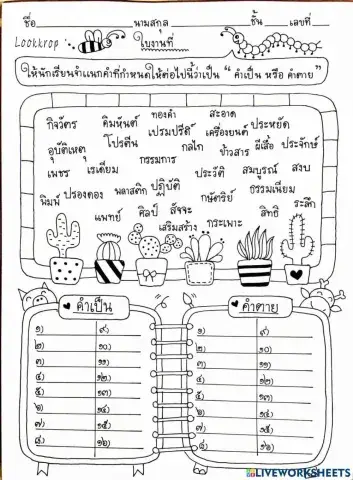 ชื่อ นามสกุล ชั้น เลขที่
Lookkrop
ใบงานที่
ให้นักเรียนจำแนกคำที่กำหนดให้ต่อไปนี้ว่าเป็น “ คำเป็น หรือ คำตาย ”
กิจวัตร คิมหันต์ ทองคำ สะอาด
เปรมปรีดิ์ เครื่องยนต์ ประหยัด
อุบัติเหตุ โปรตีน กลไก ข้าวสาร ผีเสื้อ ประจักษ์
เพชร เรเดียม กรรมการ ประวัติ สมบูรณ์ สงบ
พิมพ์ ปรองดอง พลาสติก ปฏิบัติ กษัตริย์ ธรรมเนียม ระลึก
แพทย์ ศิลป์ สัจจะ สิทธิ
เสริมสร้าง กระเพาะ
คำเป็น คำตาย
๑) ๙) ๑) ๙)
๒) ๑๐) ๒) ๑๐)
๓) ๑๑) ๓) ๑๑)
๔) ๑๒) ๔) ๑๒)
๕) ๑๓) ๕) ๑๓)
๖) ๑๔) ๖) ๑๔)
๗) ๑๕) ๗) ๑๕)
๘) ๑๖) ๘) ๑๖)
LIVEWORKSHEETS